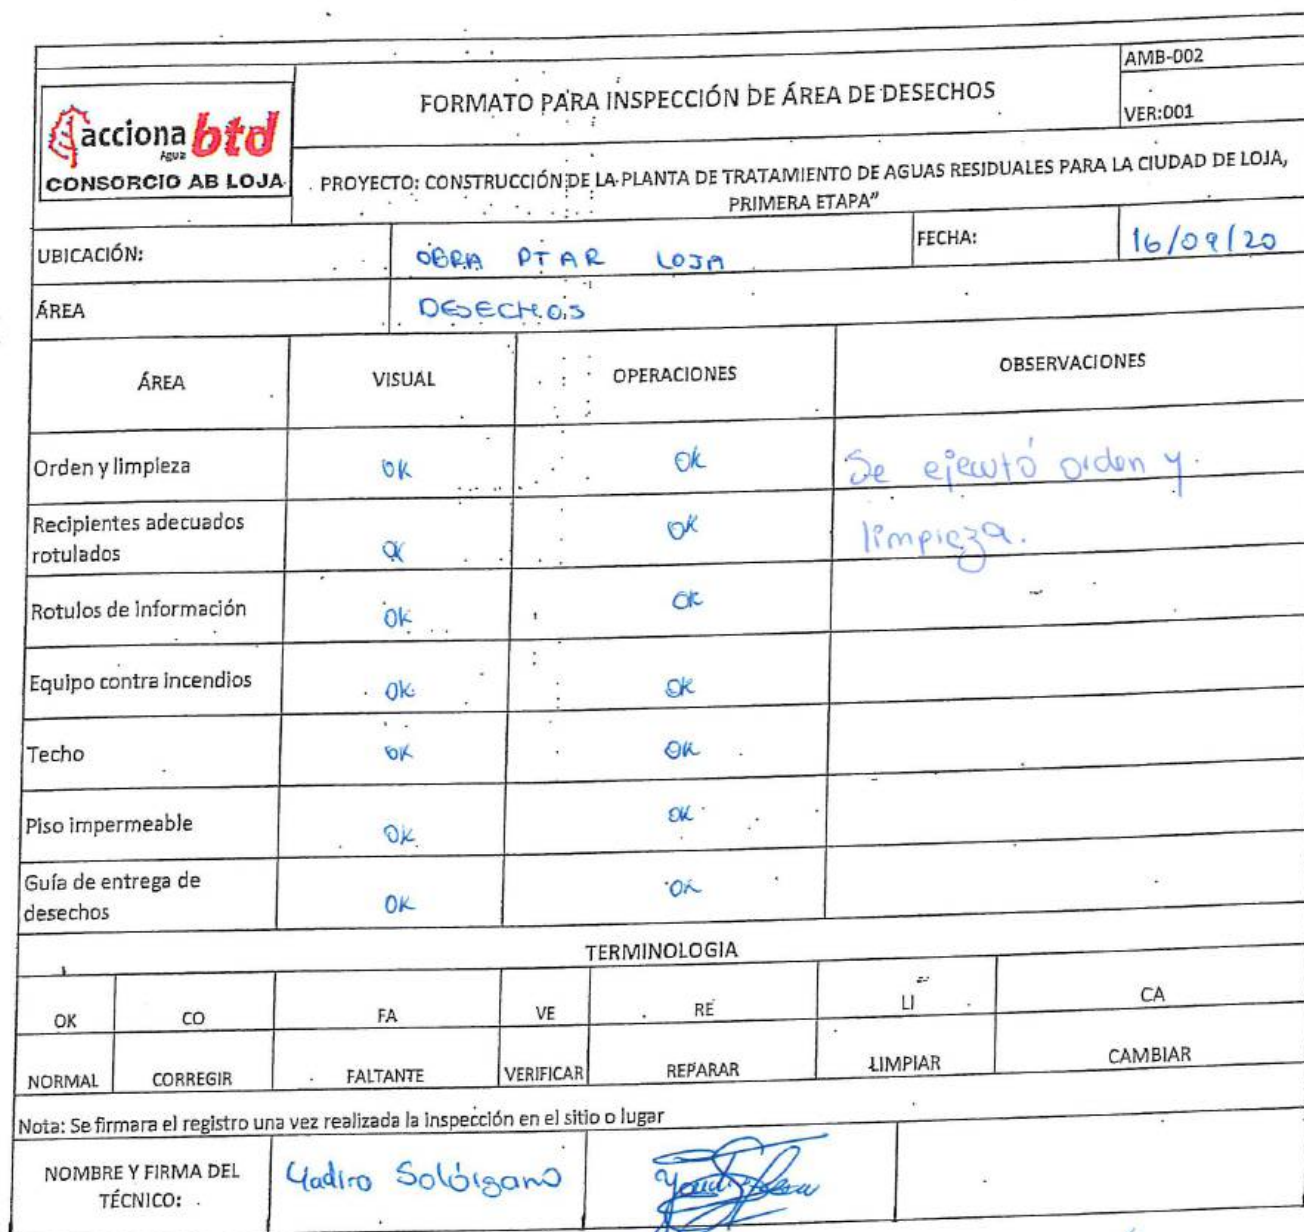 AMB-002
acciona btd
Agua
CONSORCIO AB LOJA
FORMATO PARA INSPECCIÓN DE ÁREA DE DESECHOS
VER:001
PROYECTO: CONSTRUCCIÓN DE LA PLANTA DE TRATAMIENTO DE AGUAS RESIDUALES PARA LA CIUDAD DE LOJA,
PRIMERA ETAPA"
UBICACIÓN: OBRA PTAR LOJA FECHA: 16/09/20
ÁREA DESECHOS
ÁREA VISUAL OPERACIONES OBSERVACIONES
Orden y limpieza OK OK Se ejecutó orden y
Recipientes adecuados
rotulados OK OK limpieza.
Rotulos de información OK OK
Equipo contra incendios OK OK
Techo OK OK
Piso impermeable OK OK
Guía de entrega de
desechos OK OK
TERMINOLOGIA
OK CO FA VE RE LI CA
NORMAL CORREGIR FALTANTE VERIFICAR REPARAR LIMPIAR CAMBIAR
Nota: Se firmara el registro una vez realizada la inspección en el sitio o lugar
NOMBRE Y FIRMA DEL
TÉCNICO: Solórzano